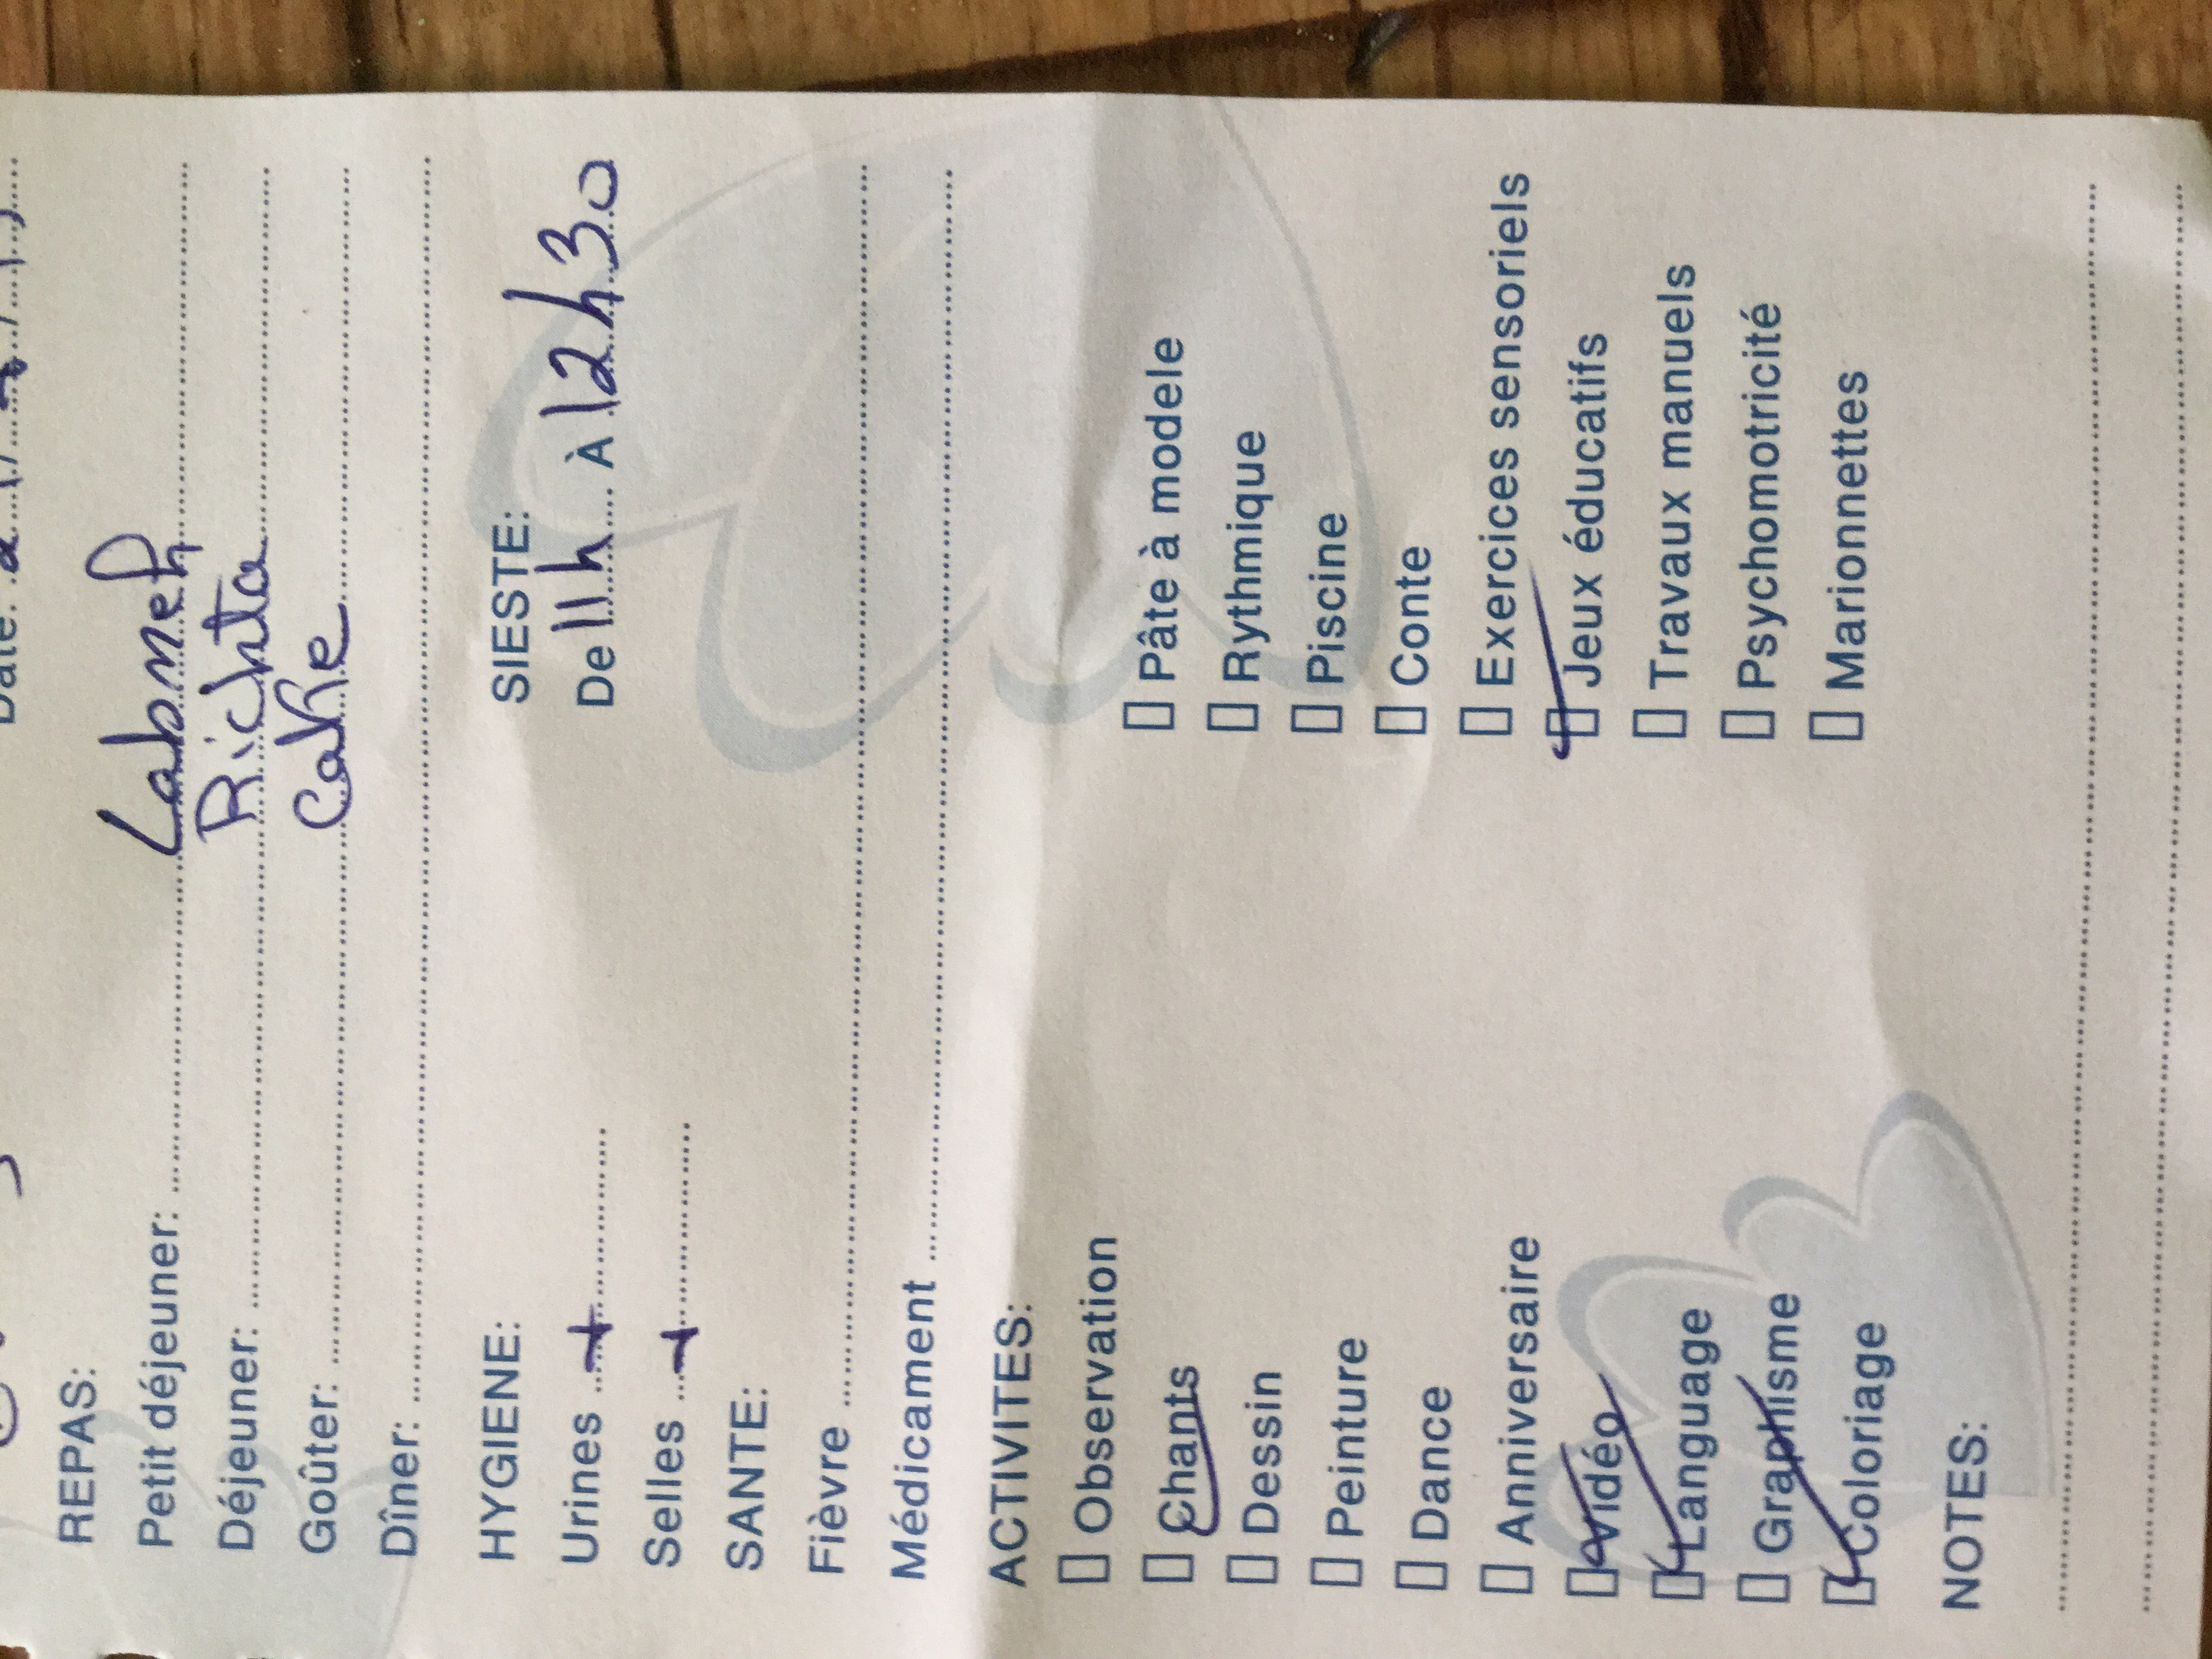 Date:
REPAS:
Petit déjeuner: Labneh
Déjeuner: Richta
Goûter: Cake
Dîner:
HYGIENE:
Urines +
Selles +
SIESTE:
De 11h À 12h30
SANTE:
Fièvre
Médicament
ACTIVITES:
Observation
Chants
Dessin
Peinture
Dance
Anniversaire
Vidéo
Language
Graphisme
Coloriage
Pâte à modele
Rythmique
Piscine
Conte
Exercices sensoriels
Jeux éducatifs
Travaux manuels
Psychomotricité
Marionnettes
NOTES: